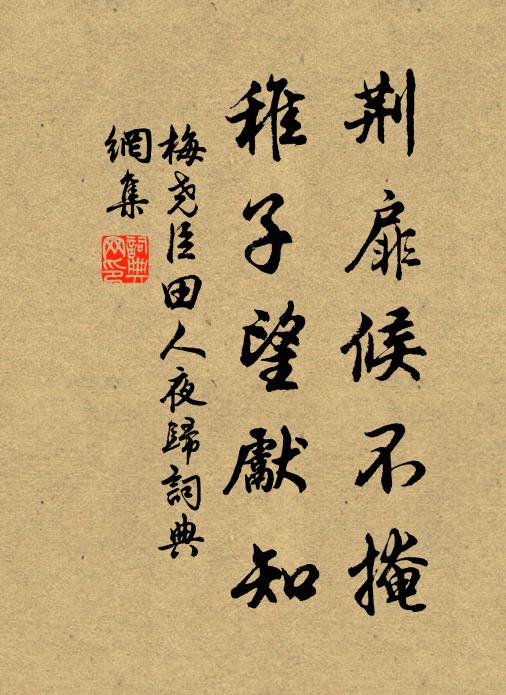 荆扉候不掩
稚子望獻知
梅尧臣田人夜歸詞典
網集
詞典
网印